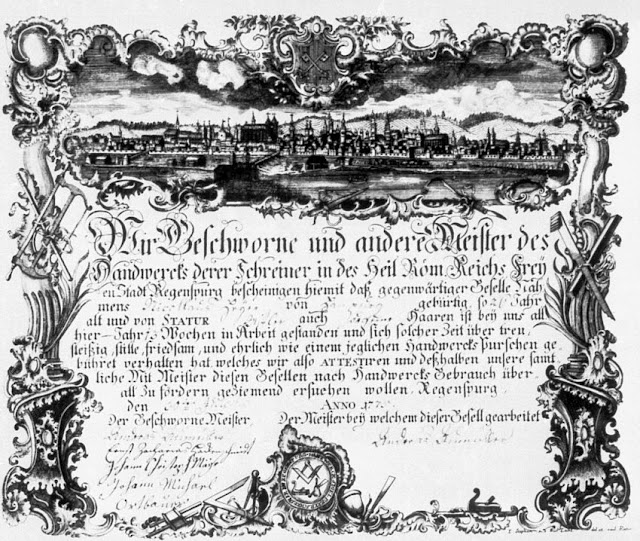 Wir Geschworne und andere Meister des
Handwercks derer Schreiner in des Heil Röm Reichs Frey
en Stadt Regenspurg bescheinigen hiemit daß gegenwärtiger Geselle Nah
mens von gebürtig so 21 Jahr
alt und von STATUR auch Haaren ist bey uns all
hier Jahr Wochen in Arbeit gestanden und sich solcher Zeit über treu
fleißig, stille, friedsam, und ehrlich wie einem jeglichen Handwercks Purschen ge
bühret verhalten hat, welches wir also ATTESTIREN und deßhalben unsere sämt
liche Mit Meister diesen Gesellen nach Handwercks Gebrauch über
all zu fördern geziemend ersuchen wollen, Regenspurg,
den ANNO 177
Der Geschworne Meister Der Meister bey welchem dieser Gesell gearbeitet
Andreas Andreas
Ernst
Johann
Johann Michael